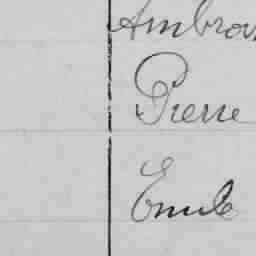 Ambrois
Pierre
Emile